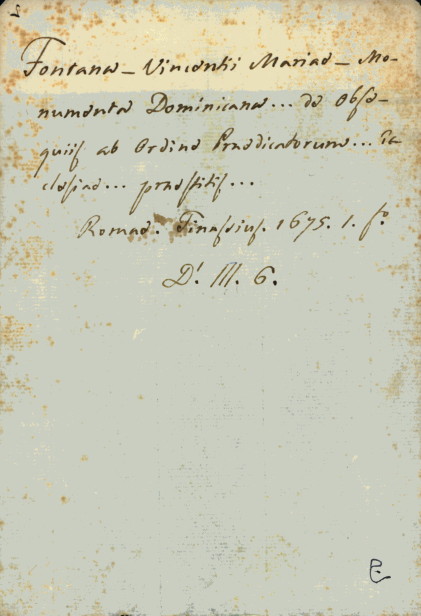 Fontana — Vincentii Mariae — Mo-
numenta Dominicana... de obse-
quiis ab Ordine Praedicatorum... Ec
clesiae... praestitis...
Romae. Tinassius. 1675. 1. fo.
D'. III. 6.